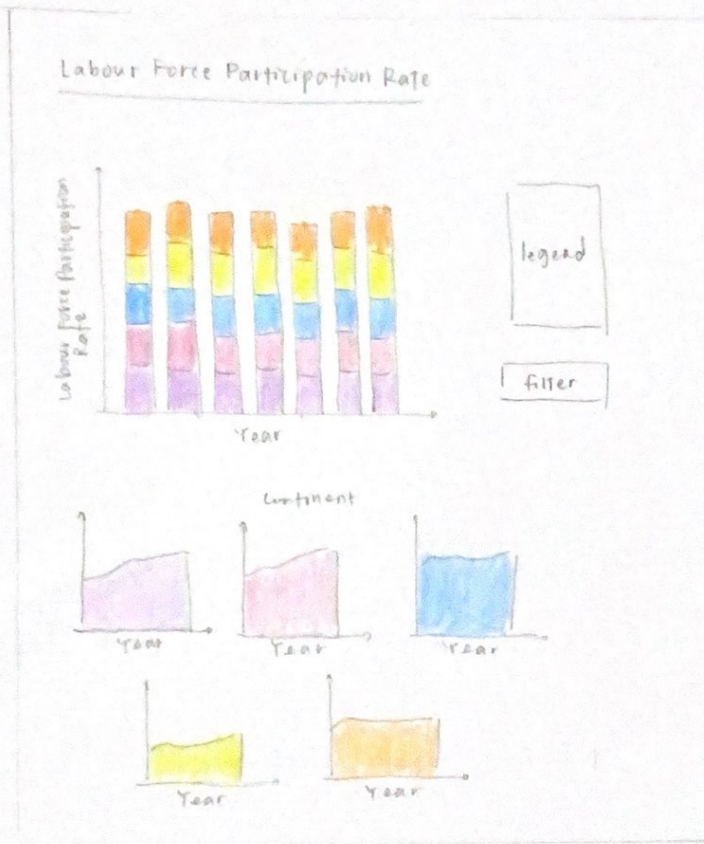 Labour Force Participation Rate
Labour Force Participation
Rate
legend
filter
Year
Continent
Year
Year
Year
Year
Year